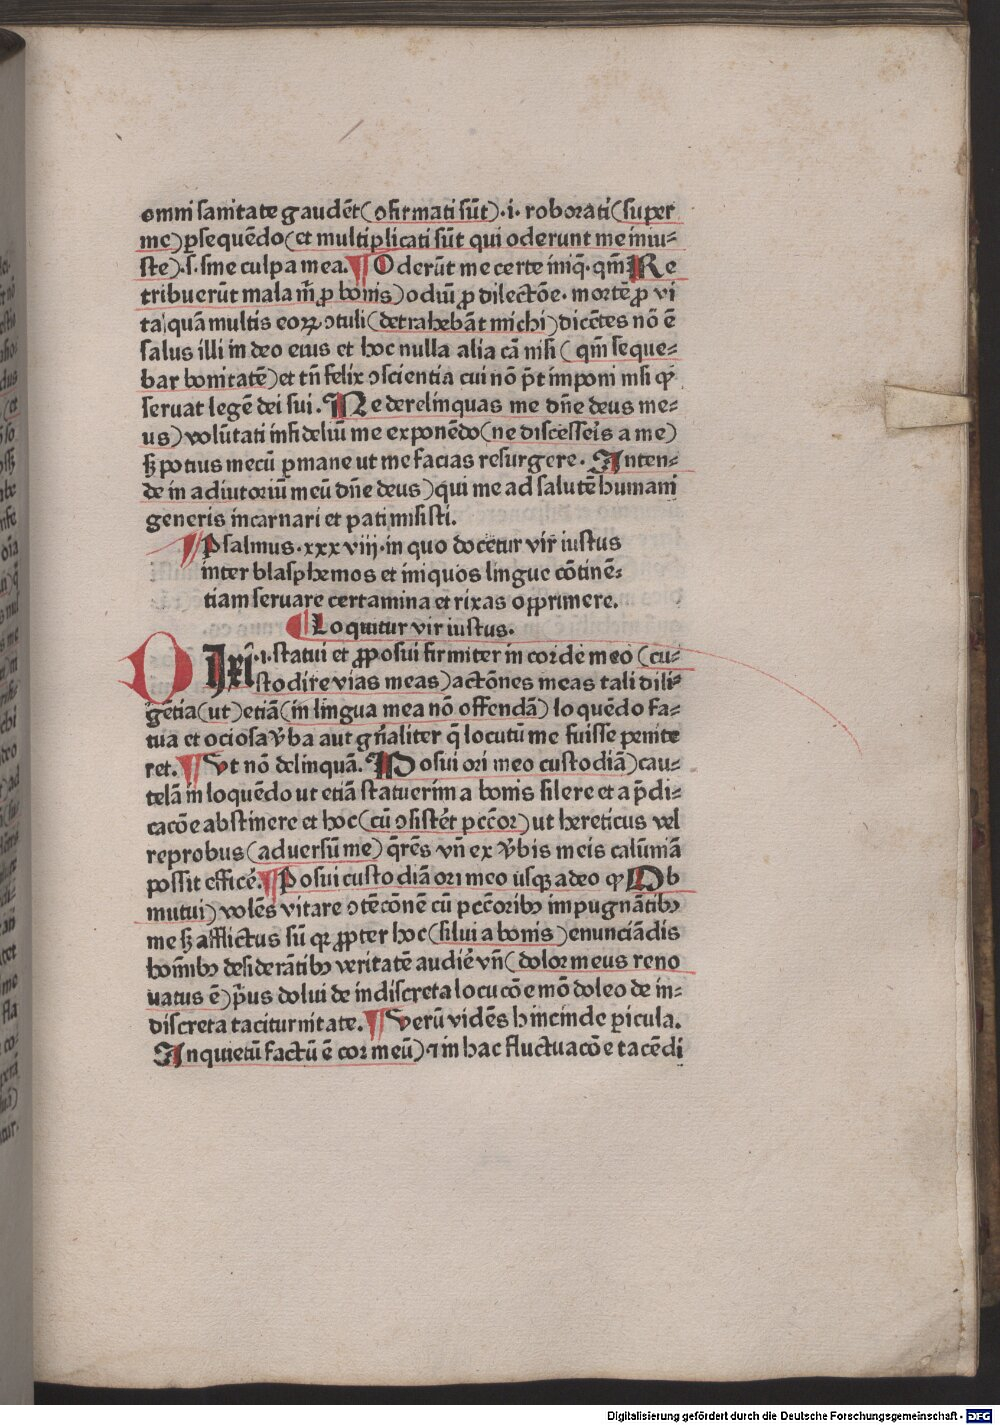 omni sanitate gaudēt (ɔfirmati sūt)·i· roborati (super
me) ꝑsequēdo (et multiplicati sūt qui oderunt me iniu⸗
ste)·s· sine culpa mea. ¶ Oderūt me certe iniq̄· qm̄ Re
tribuerūt mala m̄ ꝓ bonis) odiū ꝓ dilectōe· mortē ꝓ vi
ta quā multis eoꝝ ɔtuli (detrahebāt michi) dicētes nō ē
salus illi in deo eius et hoc nulla alia cā nisi ( qm̄ seque⸗
bar bonitatē) et tn̄ felix ɔscientia cui nō p̄t imponi nisi ꝙ
seruat legē dei sui. Ne derelinquas me dn̄e deus me⸗
us) volūtati infideliū me exponēdo (ne discesseis a me)
sꝫ potius mecū ꝑmane ut me facias resurgere· Inten⸗
de in adiutoriū meū dn̄e deus) qui me ad salutē humani
generis incarnari et pati misisti.
¶ Psalmus· xxxviij· in quo docetur vir iustus
inter blasphemos et iniquos lingue cōtinē⸗
tiam seruare certamina et rixas opprimere.
¶ Loquitur vir iustus.
DIxi·i· statui et ꝓposui firmiter in corde meo (cu⸗
stodire vias meas) actōnes meas tali dili⸗
gētia (ut) etiā (in lingua mea nō offendā) loquēdo fa⸗
tua et ociosa v̄ba aut gn̄aliter q̄ locutū me fuisse penite
ret. ¶ Vt nō delinquā. Posui ori meo custodiā) cau⸗
telā in loquēdo ut etiā statuerim a bonis silere et a p̄di⸗
cacōe abstinere et hoc (cū ɔsistēt pccōr) ut hereticus vel
reprobus (aduersū me) q̄rēs vn̄ ex v̄bis meis calūniā
possit efficē. ¶ Posui custodiā ori meo usqꝫ adeo ꝙ Ob
mutui) volēs vitare ɔtēcōnē cū pccōribꝫ impugnātibꝫ
me sꝫ afflictus sū qꝛ ꝓpter hoc (silui a bonis) enunciādis
homībꝫ desiderātibꝫ veritatē audiē vn̄ (dolor meus reno
uatus ē) p̄us dolui de indiscreta locucōe mō doleo de in⸗
discreta taciturnitate. ¶ Verū vidēs hincinde ꝑicula.
Inquietū factū ē cor meū) ⁊ in hac fluctuacōe tacēdi
Digitalisierung gefördert durch die Deutsche Forschungsgemeinschaft - DFG